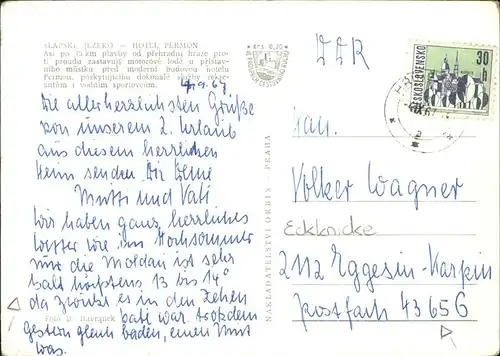 SLAPSKÉ JEZERO — HOTEL PERMON
Asi po 35 km plavby od přehradní hráze pro-
ti proudu zastavují motorové lodě u přístav-
ního můstku před moderní budovou hotelu
Permon, poskytujícího dokonalé služby rekre-
antům i vodním sportovcům.
4.9.67
Die allerherzlichsten Grüße
von unserem 2. Urlaub
aus diesem herrlichen
Heim senden Dir Deine
Mutti und Vati
Wir haben ganz herrliches
Wetter wie im Hochsommer
nur die Moldau ist sehr
kalt höchstens 13 bis 14°
da zwickt es in den Zehen
Vati war trotzdem
gestern gleich baden, einen Mut
was.
Foto B. Havránek
NAKLADATELSTVÍ ORBIS PRAHA
DDR
ČESKOSLOVENSKO
30
h
Volker Wagner
Eckknicke
2112 Eggesin-Karpin
Postfach 43656